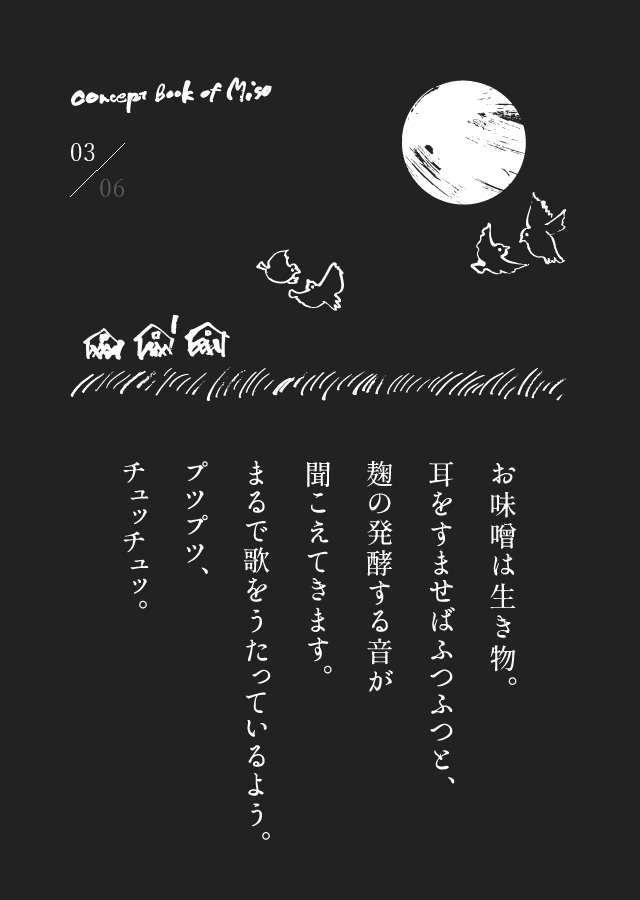 Concept Book of Miso
03
06
お味噌は生き物。
耳をすませばふつふつと、
麹の発酵する音が
聞こえてきます。
まるで歌をうたっているよう。
プツプツ、
チュッチュッ。